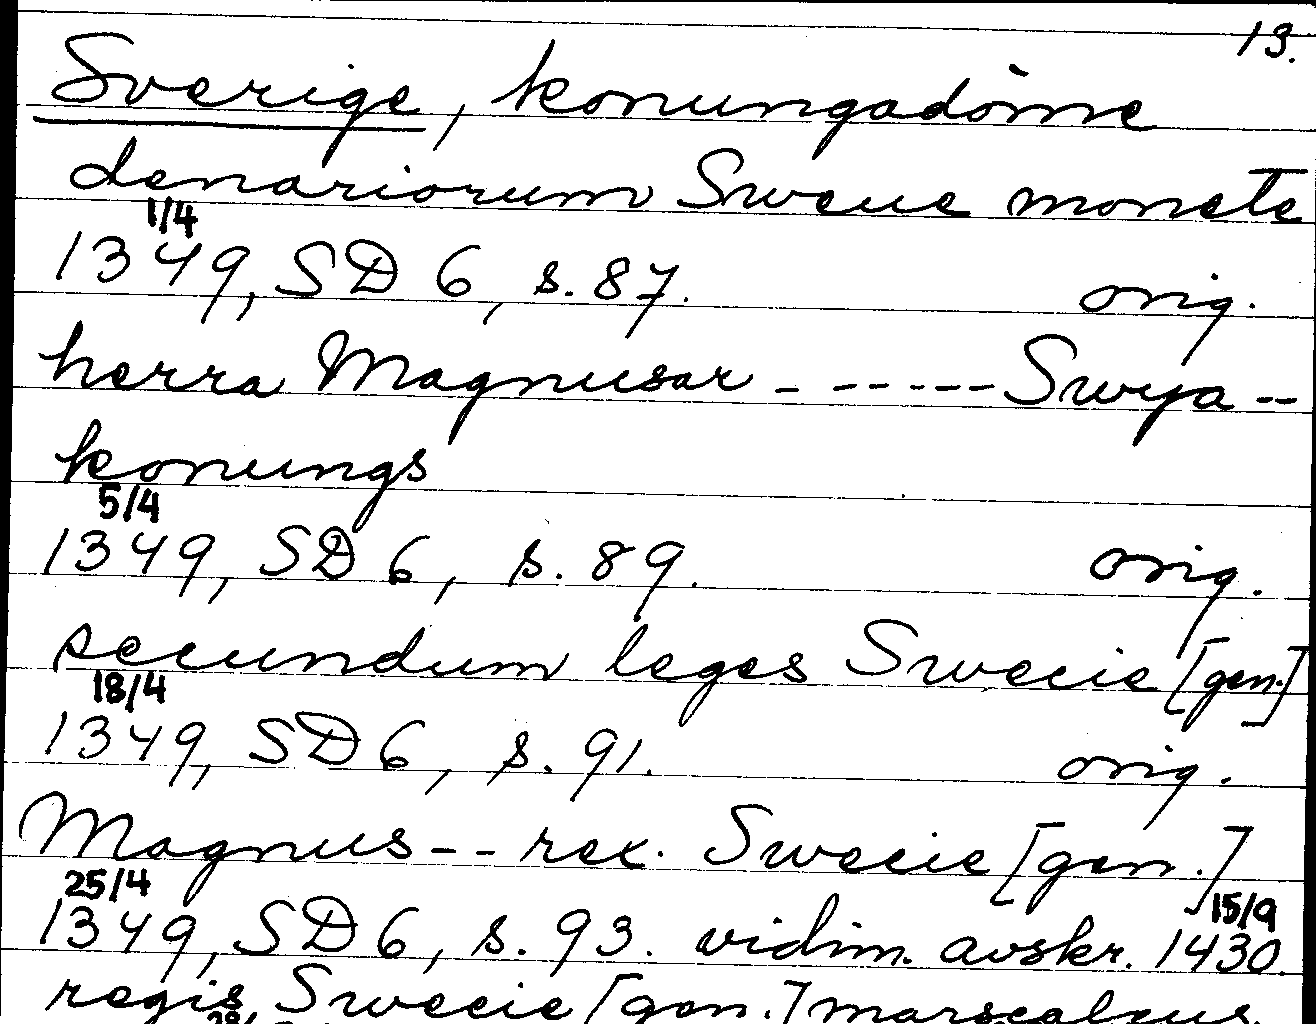 13.
Sverige, konungadöme
denariorum Sweue monete
1/4
1349, SD 6, s. 87. orig.
herra Magnusar - - - - - - Swya - -
konungs
5/4
1349, SD 6, s. 89. orig.
secundum leges Swecie [gen.]
18/4
1349, SD 6, s. 91. orig.
Magnus - - rex. Swecie [gen.]
25/4 15/9
1349, SD 6, s. 93. vidim. avskr. 1430.
regis Swecie [gen.] marscalcus